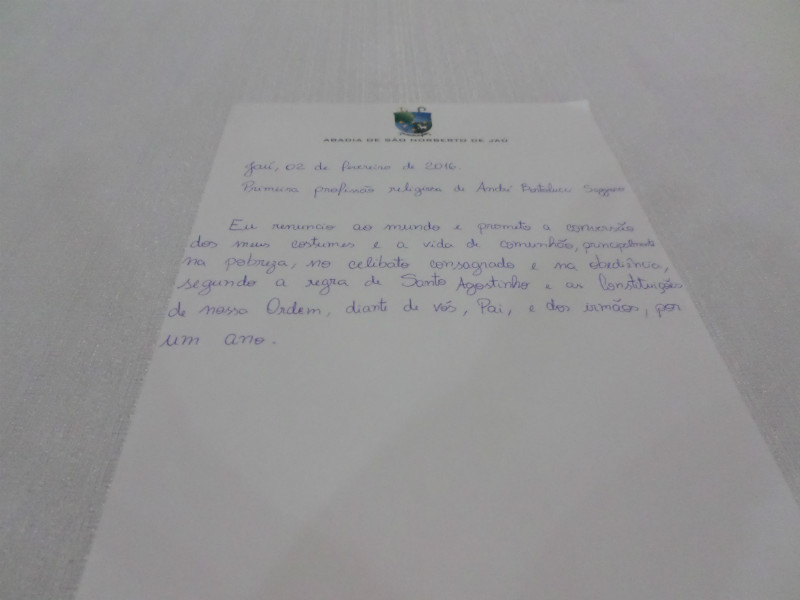 ABADIA DE SÃO NORBERTO DE JAÚ
Jaú, 02 de fevereiro de 2016.
Primeira profissão religiosa de André
Eu renuncio ao mundo e prometo a conversão
dos meus costumes e a vida de comunhão, principalmente
na pobreza, no celibato consagrado e na obediência,
segundo a regra de Santo Agostinho e as Constituições
de nossa Ordem, diante de vós, Pai, e dos irmãos, por
um ano.